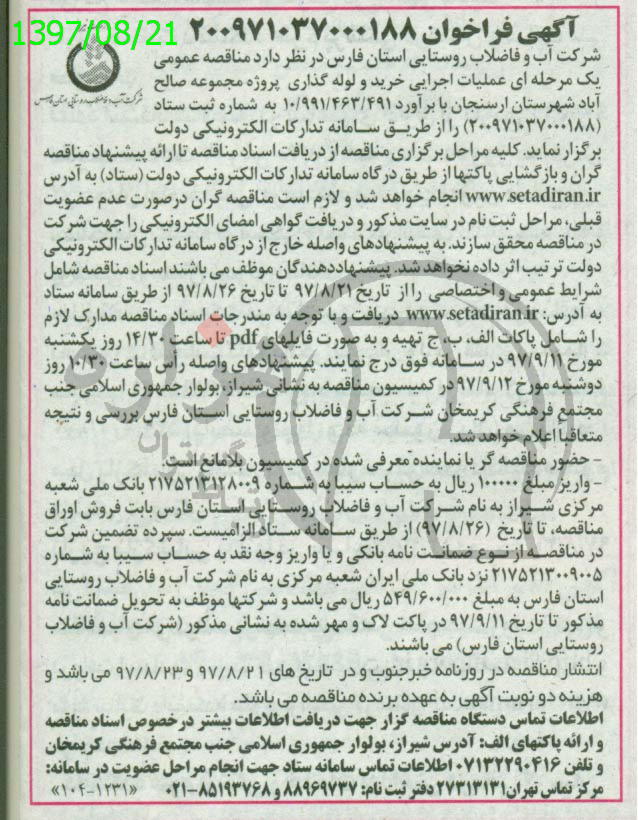 1397/08/21
آگهی فراخوان ۲۰۰۹۷۱۰۳۷۰۰۰۱۸۸
شرکت آب و فاضلاب روستایی استان فارس در نظر دارد مناقصه عمومی
یک مرحله ای عملیات اجرایی خرید و لوله گذاری پروژه مجموعه صالح
آباد شهرستان ارسنجان با برآورد ۱۰/۹۹۱/۴۶۳/۴۹۱ به شماره ثبت ستاد
(۲۰۰۹۷۱۰۳۷۰۰۰۱۸۸) را از طریق سامانه تدارکات الکترونیکی دولت
شرکت آب و فاضلاب روستایی استان فارس
برگزار نماید. کلیه مراحل برگزاری مناقصه از دریافت اسناد مناقصه تا ارائه پیشنهاد مناقصه
گران و بازگشایی پاکتها از طریق درگاه سامانه تدارکات الکترونیکی دولت (ستاد) به آدرس
www.setadiran.ir انجام خواهد شد و لازم است مناقصه گران درصورت عدم عضویت
قبلی، مراحل ثبت نام در سایت مذکور و دریافت گواهی امضای الکترونیکی را جهت شرکت
در مناقصه محقق سازند. به پیشنهادهای واصله خارج از درگاه سامانه تدارکات الکترونیکی
دولت ترتیب اثر داده نخواهد شد. پیشنهاددهندگان موظف می باشند اسناد مناقصه شامل
شرایط عمومی و اختصاصی را از تاریخ ۹۷/۸/۲۱ تا تاریخ ۹۷/۸/۲۶ از طریق سامانه ستاد
به آدرس: www.setadiran.ir دریافت و با توجه به مندرجات اسناد مناقصه مدارک لازم
را شامل پاکات الف، ب، ج تهیه و به صورت فایلهای pdf تا ساعت ۱۴/۳۰ روز یکشنبه
مورخ ۹۷/۹/۱۱ در سامانه فوق درج نمایند. پیشنهادهای واصله رأس ساعت ۱۰/۳۰ روز
دوشنبه مورخ ۹۷/۹/۱۲ در کمیسیون مناقصه به نشانی شیراز، بولوار جمهوری اسلامی جنب
مجتمع فرهنگی کریمخان شرکت آب و فاضلاب روستایی استان فارس بررسی و نتیجه
متعاقباً اعلام خواهد شد.
- حضور مناقصه گر یا نماینده معرفی شده در کمیسیون بلامانع است.
- واریز مبلغ ۱۰۰۰۰۰ ریال به حساب سیبا به شماره ۲۱۷۵۲۱۳۱۲۸۰۰۹ بانک ملی شعبه
مرکزی شیراز به نام شرکت آب و فاضلاب روستایی استان فارس بابت فروش اوراق
مناقصه، تا تاریخ (۹۷/۸/۲۶) از طریق سامانه ستاد الزامیست. سپرده تضمین شرکت
در مناقصه از نوع ضمانت نامه بانکی و یا واریز وجه نقد به حساب سیبا به شماره
۲۱۷۵۲۱۳۰۰۹۰۰۵ نزد بانک ملی ایران شعبه مرکزی به نام شرکت آب و فاضلاب روستایی
استان فارس به مبلغ ۵۴۹/۶۰۰/۰۰۰ ریال می باشد و شرکتها موظف به تحویل ضمانت نامه
مذکور تا تاریخ ۹۷/۹/۱۱ در پاکت لاک و مهر شده به نشانی مذکور (شرکت آب و فاضلاب
روستایی استان فارس) می باشند.
انتشار مناقصه در روزنامه خبرجنوب و در تاریخ های ۹۷/۸/۲۱ و ۹۷/۸/۲۳ می باشد و
هزینه دو نوبت آگهی به عهده برنده مناقصه می باشد.
اطلاعات تماس دستگاه مناقصه گزار جهت دریافت اطلاعات بیشتر درخصوص اسناد مناقصه
و ارائه پاکتهای الف: آدرس شیراز، بولوار جمهوری اسلامی جنب مجتمع فرهنگی کریمخان
و تلفن ۰۷۱۳۲۲۹۰۴۱۶ اطلاعات تماس سامانه ستاد جهت انجام مراحل عضویت در سامانه:
مرکز تماس تهران ۲۷۳۱۳۱۳۱ دفتر ثبت نام: ۸۸۹۶۹۷۳۷ و ۸۵۱۹۳۷۶۸-۰۲۱ «۱۰۴-۱۲۳۱»